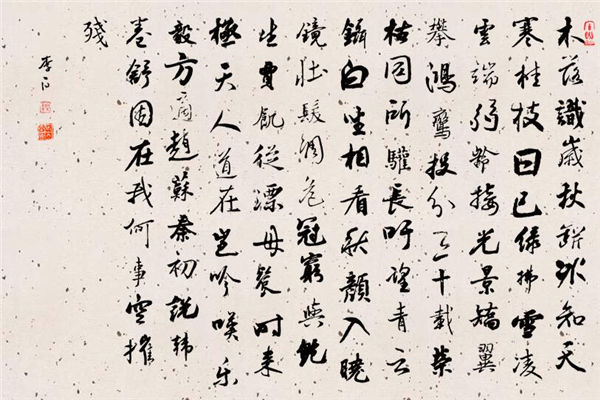 木落識歲秋缾冰知天
寒桂枝日已緑拂雪凌
雲端弱齡接光景矯翼
攀鴻鸞投分三十載榮
枯同所驩長吁望青云
鑷白坐相看秋顏入曉
鏡壯髮凋危冠窮與鮑
生賈飢從漂母餐时來
極天人道在豈吟嘆乐
毅方適趙蘇秦初説韓
卷舒固在我何事空摧
殘